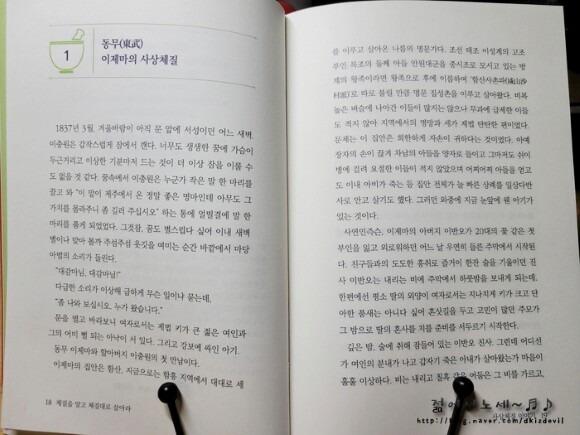 1
동무(東武)
이제마의 사상체질
1837년 3월, 겨울바람이 아직 문 앞에 서성이던 어느 새벽,
이충원은 갑작스럽게 잠에서 깬다. 너무도 생생한 꿈에 가슴이
두근거리고 이상한 기분마저 드는 것이 더 이상 잠을 이룰 수
도 없을 것 같다. 꿈속에서 이충원은 누군가 작은 말 한 마리를
끌고 와 "이 말이 제주에서 온 정말 좋은 명마인데 아무도 그
가치를 몰라주니 좀 길러 주십시오" 하는 통에 얼떨결에 말 한
마리를 품게 되었었다. 그것참, 꿈도 별스럽다 싶어 이내 새벽
별이나 맞아 볼까 주섬주섬 옷깃을 여미는 순간 바깥에서 마당
아범의 소리가 들린다.
"대감마님, 대감마님!"
다급한 소리가 이상해 급하게 무슨 일이냐 묻는데,
"좀 나와 보십시오, 누가 왔습니다."
문을 열고 바라보니 여자로서는 제법 키가 큰 젊은 여인과
그의 어미 뻘 되는 아낙이 서 있다. 그리고 강보에 싸인 아기.
동무 이제마와 할아버지 이충원의 첫 만남이다.
이제마의 집안은 함산, 지금으로는 함흥 지역에서 대대로 세
18 체질을 알고 체질대로 살아라
를 이루고 살아온 나름의 명문가다. 조선 태조 이성계의 고조
부인 목조의 둘째 아들 안원대군을 중시조로 모시고 있는 명
계의 왕족이라면 왕족으로 후에 이름하여 '함산사촌파(咸山沙
村派)'로 따로 불릴 만큼 문 집성촌을 이루고 살아왔다. 비록
높은 벼슬에 나아간 이들이 많지는 않으나 무과에 급제한 이들
도 적지 않아 지역에서의 명망과 세가 제법 탄탄한 편이었다.
문제는 이 집안은 희한하게 자손이 귀하다는 것이었다. 아예
장자의 손이 끊겨 차남의 아들을 양자로 들이고 그마저도 쉬이
병에 걸려 요절한 이들이 적지 않았으며 어찌어찌 아들을 얻고
도 이내 아비가 죽는 등 집안 전체가 늘 빠른 상례를 일삼다만
사로 안고 살기도 했다. 그러던 와중에 지금 눈앞에 웬 아기가
있는 것이다.
사연인즉슨, 이제마의 아버지 이반오가 20대의 꽃 같은 첫
부인을 잃고 외로워하던 어느 날 우연히 들른 주막에서 시작된
다. 친구들과의 도도한 흥취로 즐기어 한잔 술을 기울이던 진
사 이반오는 내리는 비에 주막에서 하룻밤을 보내게 되는데,
한편에선 평소 딸의 외양이 여자로서는 지나치게 키가 크고 단
아한 품새는 아니다 싶어 혼삿길을 두고 고민이 많던 주모가
그 밤으로 딸의 혼사를 치를 준비를 서두르기 시작한다.
깊은 밤, 술에 취해 잠들어 있는 이반오 진사. 그런데 어디선
가 여인의 분내가 나고 갑자기 죽은 아내가 살아왔는가 마음이
흥흥 이상하다. 비는 내리고 칠흑 같은 어둠은 그 비를 가르고,
사상체질 19
젊어서 노세~♬♪
http://blog.naver.com/dkizdevil